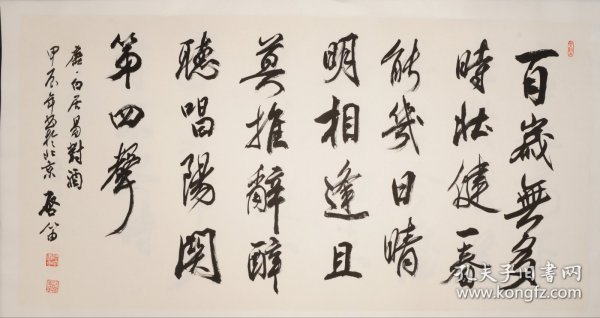 百歲無多
時壯健一春
能幾日晴
明相逢且
莫推辭醉
聽唱陽関
第四聲
唐·白居易對酒
甲辰年筆於北京 啓笛
孔夫子旧书网
www.kongfz.com